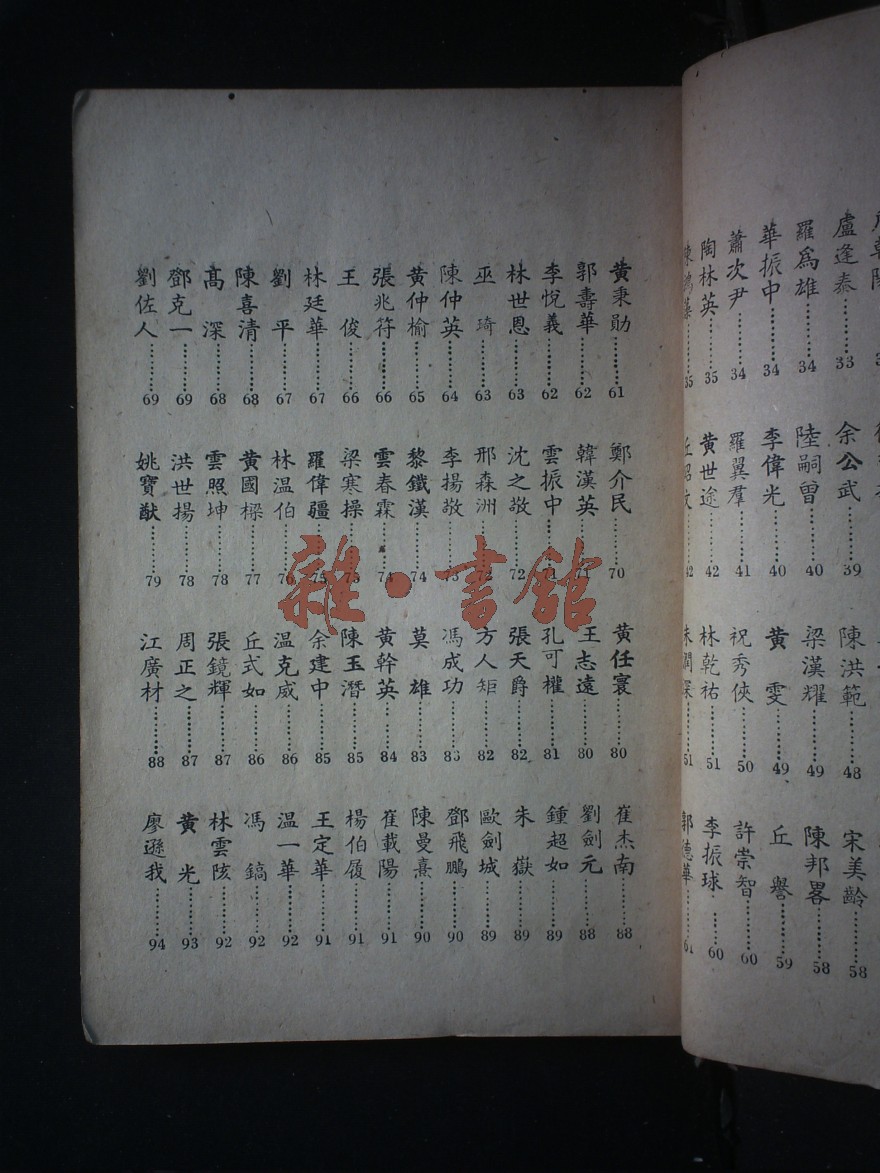 盧逢泰………33
羅為雄………34
華振中………34
蕭次尹………34
陶林英………35
35
余公武………39
陸嗣曾………40
李偉光………40
羅翼羣………41
黃世途………42
42
陳洪範………48
梁漢耀………49
黃　雯………49
祝秀俠………50
林乾祐………51
51
宋美齡………58
陳邦畧………58
丘　譽………59
許崇智………60
李振球………60
郭德華………61
黃秉勛………61
郭壽華………62
李悅義………62
林世恩………63
巫　琦………63
陳仲英………64
黃仲榆………65
張兆符………66
王　俊………66
林廷華………67
劉　平………67
陳喜清………68
高　深………68
鄧克一………69
劉佐人………69
鄭介民………70
韓漢英………71
雲振中………71
沈之敬………72
邢森洲………72
李揚敬………73
黎鐵漢………74
雲春霖………74
梁寒操………75
羅偉疆………75
林温伯………76
黃國樑………77
雲照坤………78
洪世揚………78
姚寶猷………79
黃任寰………80
王志遠………80
孔可權………81
張天爵………82
方人矩………82
馮成功………83
莫　雄………83
黃幹英………84
陳玉潛………85
余建中………85
温克威………86
丘式如………86
張鏡輝………87
周正之………87
江廣材………88
崔杰南………88
劉劍元………88
鍾超如………89
朱　嶽………89
歐劍城………89
鄧飛鵬………90
陳曼熹………90
崔載陽………91
楊伯履………91
王定華………91
温一華………92
馮　鎬………92
林雲陔………92
黃　光………93
廖遜我………94
雜·書館